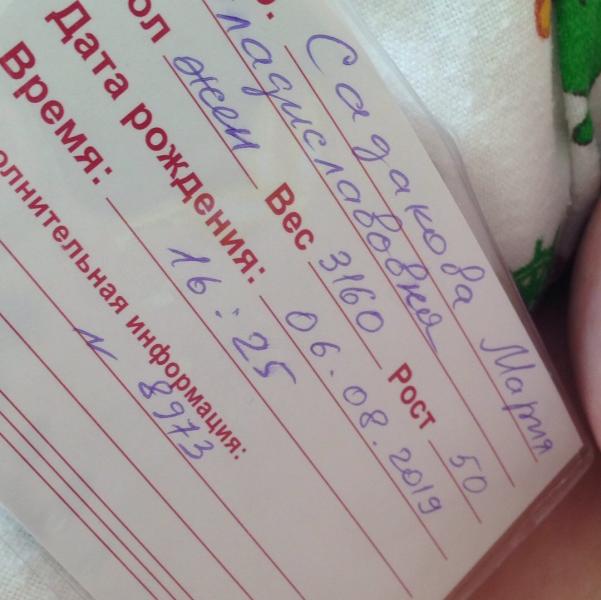 О. Садакова Мария
ладиславовна
ол жен Вес 3160 Рост 50
Дата рождения: 06.08.2019
Время: 16:25
олнительная информация:
N 8973